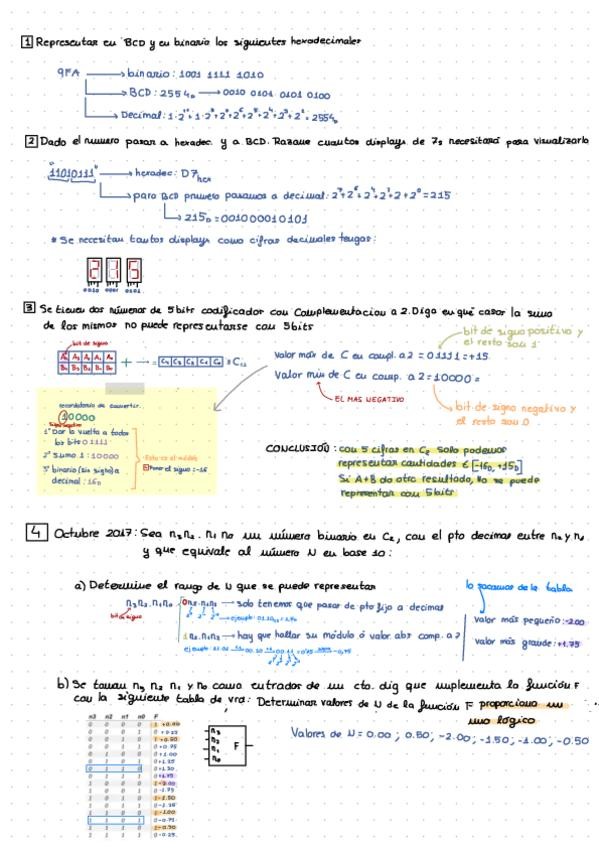 1 Representar en BCD y en binario los siguientes hexadecimales
9FA → binario: 1001 1111 1010
→ BCD: 2554D → 0010 0101 0101 0100
→ Decimal: 1·2¹¹+1·2⁸+2⁷+2⁶+2⁵+2⁴+2³+2¹ = 2554D
2 Dado el numero pasar a hexadec. y a BCD. Razone cuantos displays de 7s necesitará para visualizarlo
"11010111" → hexadec: D7hex
→ para BCD primero pasamos a decimal: 2⁷+2⁶+2⁴+2²+2+2⁰=215
→ 215D = 001000010101
* Se necesitan tantos displays como cifras decimales tengas:
215
0010 0001 0101
3 Se tienen dos números de 5bits codificador con Complementacion a 2. Diga en qué casos la suma
de los mismos no puede representarse con 5bits
bit de signo positivo y
el resto son 1
bit de signo
Valor max de C en compl. a 2 = 01111 = +15
Valor min de C en comp. a 2 = 10000 =
EL MAS NEGATIVO
bit de signo negativo y
el resto son 0
recordatorio de convertir.
10000
1º Dar la vuelta a todos
los bits 01111
2º Suma 1 : 10000
3º binario (sin signo) a
decimal : 16D
Esto es el módulo
Poner el signo : -16
CONCLUSIÓN : con 5 cifras en C2 solo podemos
representar cantidades ∈ [-16D, +15D]
Si A+B da otro resultado, No se puede
representar con 5bits
4 Octubre 2017: Sea n3n2.n1n0 un número binario en C2, con el pto decimal entre n2 y n1
y que equivale al número N en base 10:
a) Determine el rango de N que se puede representar
lo sacamos de la tabla
n3n2.n1n0
bit de signo
0n2.n1n0 → solo tenemos que pasar de pto fijo a decimal
1n2.n1n0 → hay que hallar su módulo ó valor abs comp. a 2
valor más pequeño: -2.00
valor más grande: +1.75
b) Se toman n3 n2 n1 y n0 como entradas de un cto. dig que implementa la función F
con la siguiente tabla de vrd: Determinar valores de N de la función F proporciona un
uno lógico
n3 n2 n1 n0 F
0 0 0 0 1 +0.00
0 0 0 1 0 +0.25
0 0 1 0 1 +0.50
0 0 1 1 0 +0.75
0 1 0 0 0 +1.00
0 1 0 1 0 +1.25
0 1 1 0 0 +1.50
0 1 1 1 0 +1.75
1 0 0 0 1 -2.00
1 0 0 1 0 -1.75
1 0 1 0 1 -1.50
1 0 1 1 0 -1.25
1 1 0 0 1 -1.00
1 1 0 1 0 -0.75
1 1 1 0 1 -0.50
1 1 1 1 0 -0.25
n3
n2
n1
n0
F
Valores de N = 0.00 ; 0.50 ; -2.00 ; -1.50 ; -1.00 ; -0.50